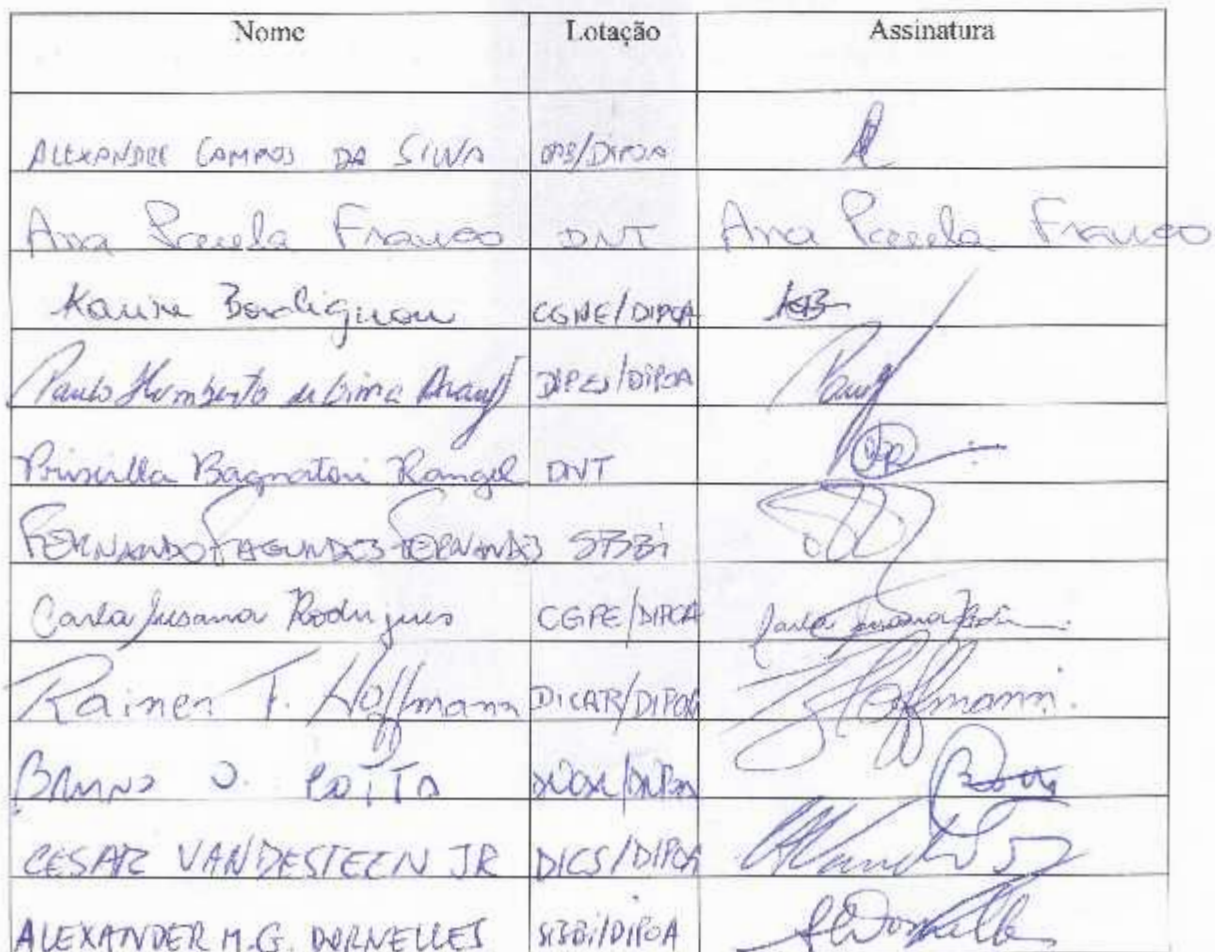 Nome Lotação Assinatura
ALEXANDRE CAMPOS DA SILVA /DIPOA
Ana Paula Franco DNT Ana Paula Franco
Karine Bordignon CGPE/DIPOA KB
Paulo Humberto de Lima Araujo DIPES/DIPOA
Priscilla Bagnatori Rangel DNT
FERNANDO FAGUNDES FERNANDES SISBI
Carla Susana Rodrigues CGPE/DIPOA Carla Susana
Rainer T. Hoffmann DICAR/DIPOA Hoffmann
BRUNO POTTO
CESAR VANDESTEEN JR DICS/DIPOA
ALEXANDER M.G. DORNELLES SISBI/DIPOA